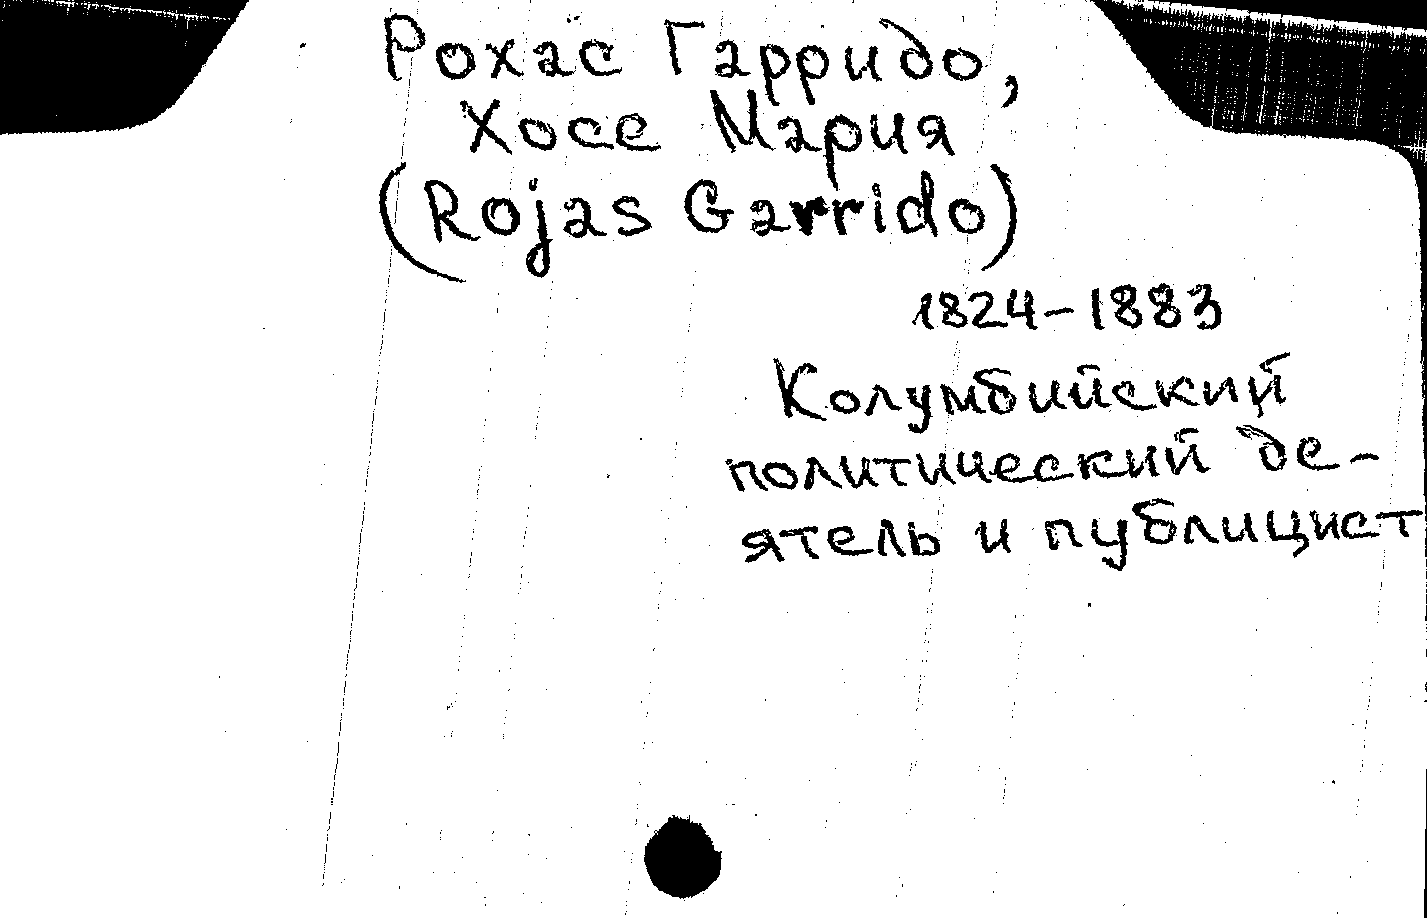 Рохас Гарридо,
Хосе Мария
(Rojas Garrido)
1824-1883
Колумбийский
политический де-
ятель и публицист